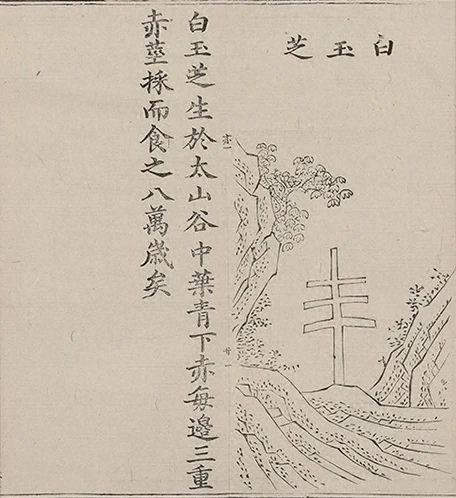 白玉芝
白玉芝生於太山谷中葉青下赤每邊三重
赤莖採而食之八萬歳矣